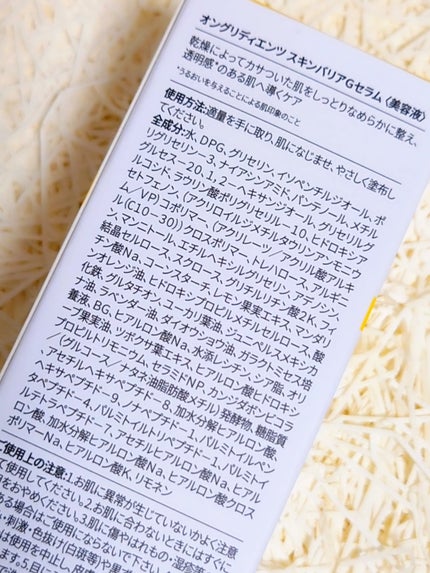 オングリディエンツ スキンバリアGセラム〈美容液〉
乾燥によってカサついた肌をしっとりなめらかに整え、
透明感*のある肌へ導くケア
*うるおいを与えることによる肌印象のこと
使用方法:適量を手に取り、肌になじませ、やさしく塗布し
てください。
全成分:水、DPG、グリセリン、イソペンチルジオール、ポ
リグリセリン-3、ナイアシンアミド、パンテノール、メチル
グルセス-20、1,2-ヘキサンジオール、グリセリルグ
ルコシド、ラウリン酸ポリグリセリル-10、ヒドロキシア
セトフェノン、(アクリロイルジメチルタウリンアンモニウ
ム/VP)コポリマー、(アクリレーツ/アクリル酸アルキ
ル(C10-30))クロスポリマー、トレハロース、アルギニ
ン、マンニトール、エチルヘキシルグリセリン、アデノシン、
結晶セルロース、スクロース、グリチルリチン酸2K、フィ
チン酸Na、コーンスターチ、レモン果実エキス、マンダリ
ンオレンジ油、ヒドロキシプロピルメチルセルロース、酸
化鉄、グルタチオン、ユーカリ葉油、ジュニペルスメキシカ
ナ油、ラベンダー油、ダイオウショウ油、ガラクトミセス培
養液、BG、ヒアルロン酸Na、水添レシチン、
プロピルトリモニウム、セラミドNP、カンジダボンビコラ
/(グルコース/ナタネ油脂肪酸メチル)発酵物、糖脂質
、アセチルヘキサペプチド-8、加水分解ヒアルロン酸、
ヘキサペプチド-9、ノナペプチド-1、パルミトイルペン
タペプチド-4、パルミトイルトリペプチド-1、パルミトイ
ルテトラペプチド-7、アセチルヒアルロン酸Na、ヒアル
ロン酸、加水分解ヒアルロン酸Na、ヒアルロン酸クロス
ポリマーNa、ヒアルロン酸K、リモネン
使用上の注意:1.お肌に異常が生じていないかよく注意
して使用してください。2.お肌に合わないときにはすぐに
をおやめください。3.肌に傷やはれもの、湿疹等
ある場合はご使用にならないで下さい。
・刺激・色抜け(白斑等)や黒ず